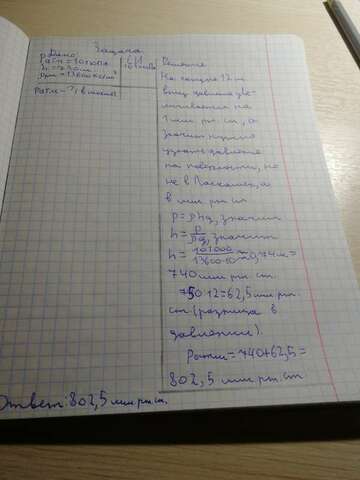 Задача
Дано:
СИ
Решение
Pатм=101кПа
101000Па
h=750м
ρрт=13600кг/м³
Pатм-?, в шахте
На каждые 12 м
вниз давление уве-
личивается на
1 мм рт. ст., а
значит нужно
узнать давление
на поверхности, но
не в Паскалях, а
в мм рт. ст
p=ρhg, значит
h=p/ρg, значит
h=101000/13600·10≈0,74м=
740 мм рт. ст.
750:12=62,5 мм рт.
ст (разница в
давлении).
Pатм=740+62,5=
802,5 мм рт. ст
Ответ: 802,5 мм рт. ст.